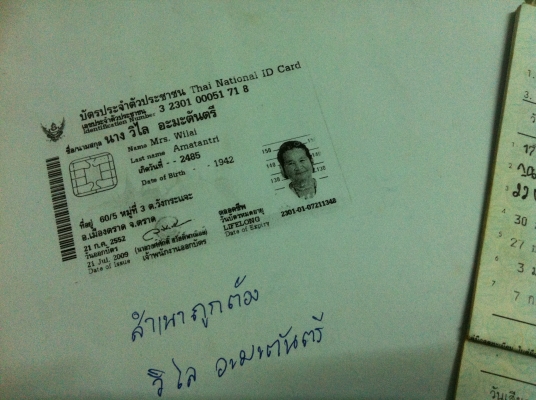 บัตรประจำตัวประชาชน Thai National ID Card
เลขประจำตัวประชาชน
Identification Number 3 2301 00051 71 8
ชื่อตัวและชื่อสกุล นาง วิไล อะมะตันตรี
Name Mrs. Wilai
Last name Amatantri
เกิดวันที่ - - 2485
Date of Birth - - 1942
ที่อยู่ 60/5 หมู่ที่ 3 ต.วังกระแจะ
อ.เมืองตราด จ.ตราด
21 ก.ค. 2552
วันออกบัตร
21 Jul. 2009
Date of Issue
เจ้าพนักงานออกบัตร
ตลอดชีพ
วันบัตรหมดอายุ
LIFELONG
Date of Expiry
150
140
130
150
140
130
2301-01-07211348
สำเนาถูกต้อง
วิไล อะมะตันตรี
1.
3.
17
30
27
3
7 ก